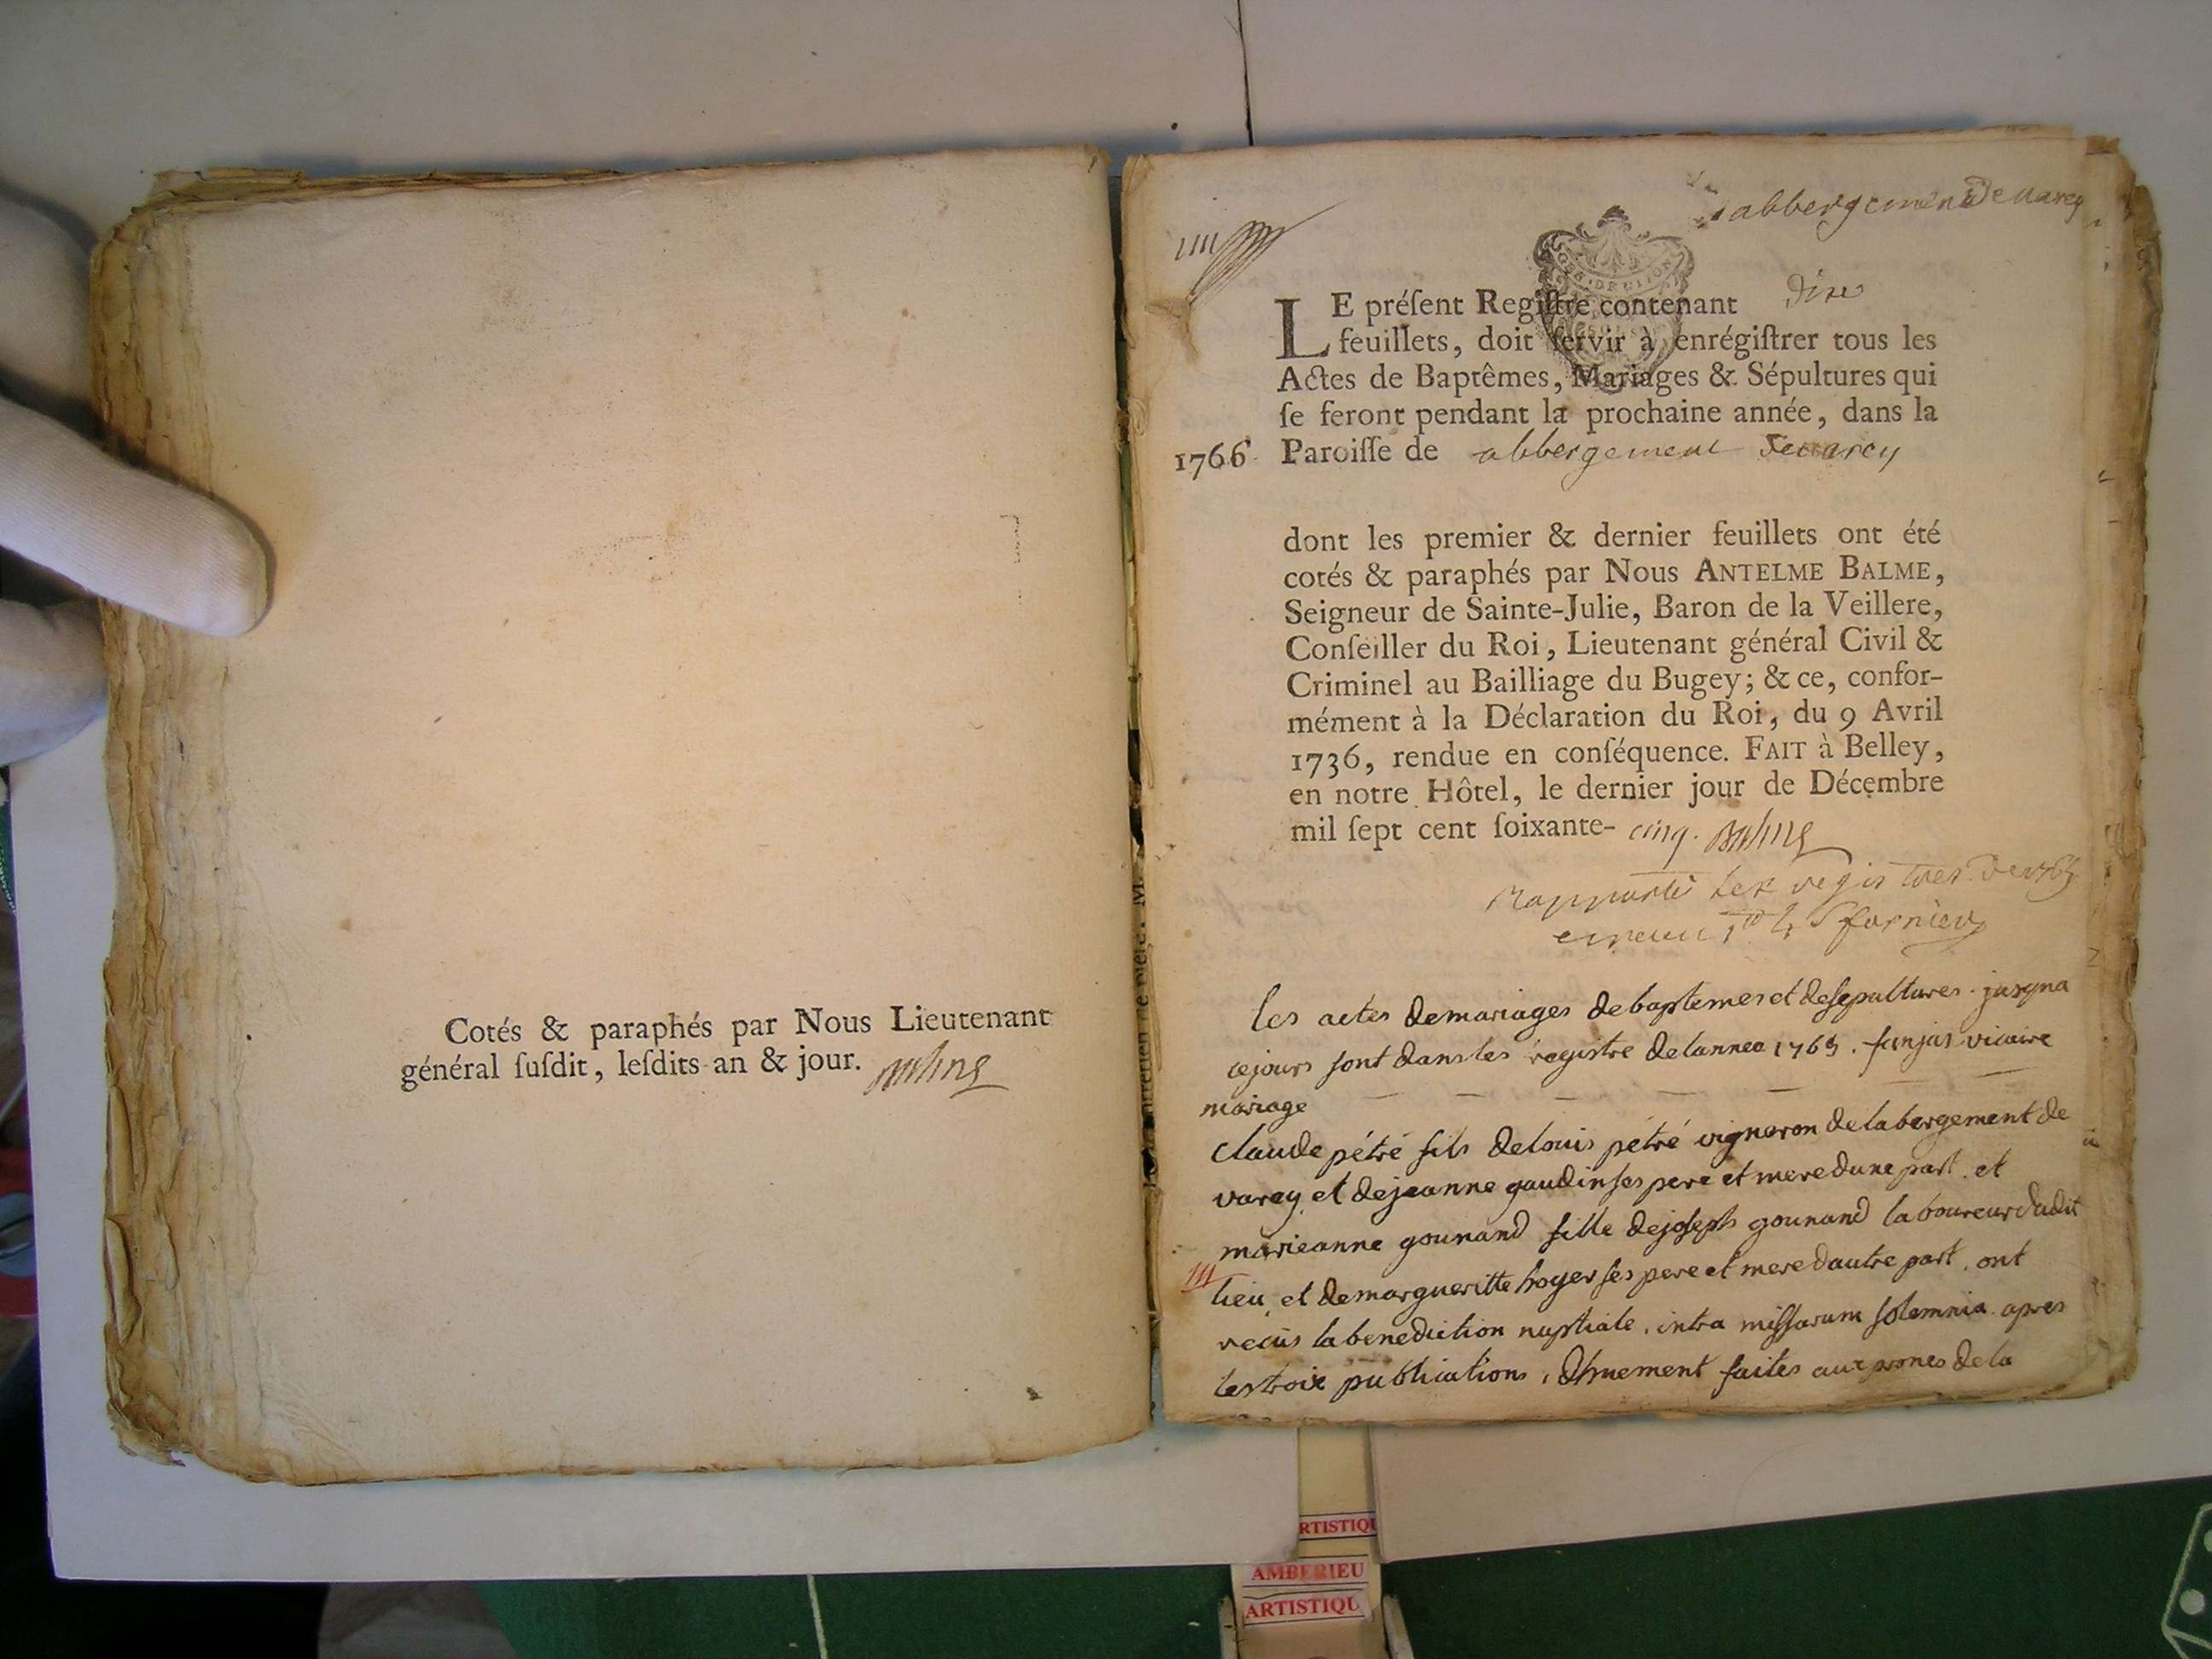 Cotés & paraphés par Nous Lieutenant
général ſuſdit, leſdits an & jour. Balme
abbergement De varey
LE préſent Regiſtre contenant dixe
feuillets, doit ſervir à enrégiſtrer tous les
Actes de Baptêmes, Mariages & Sépultures qui
ſe feront pendant la prochaine année, dans la
1766 Paroiſſe de abbergement Devarey
dont les premier & dernier feuillets ont été
cotés & paraphés par Nous ANTELME BALME,
Seigneur de Sainte-Julie, Baron de la Veillere,
Conſeiller du Roi, Lieutenant général Civil &
Criminel au Bailliage du Bugey; & ce, confor-
mément à la Déclaration du Roi, du 9 Avril
1736, rendue en conſéquence. FAIT à Belley,
en notre Hôtel, le dernier jour de Décembre
mil ſept cent ſoixante- cinq. Balme
Rapporté les registres de 1765
les actes demariages debaptemes et desepultures jusqua
cejours sont dans les registre delannee 1765. vicaire
mariage
claude pétré fils delouis pétré vigneron delabergement de
varey et dejeanne gaudin ses pere et mere dune part. et
marieanne gounand fille dejoseph gounand laboureur dudit
lieu et demargueritte hoyer ses pere et mere dautre part, ont
recüs labenediction nuptiale, intra missarum solemnia apres
les troix publications, dhuement faites aux prones dela
RTISTIQU
AMBERIEU
ARTISTIQU